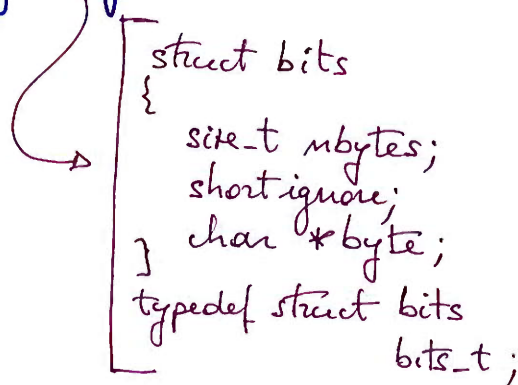 struct bits
{
size_t nbytes;
short ignore;
char *byte;
}
typedef struct bits
bits_t;